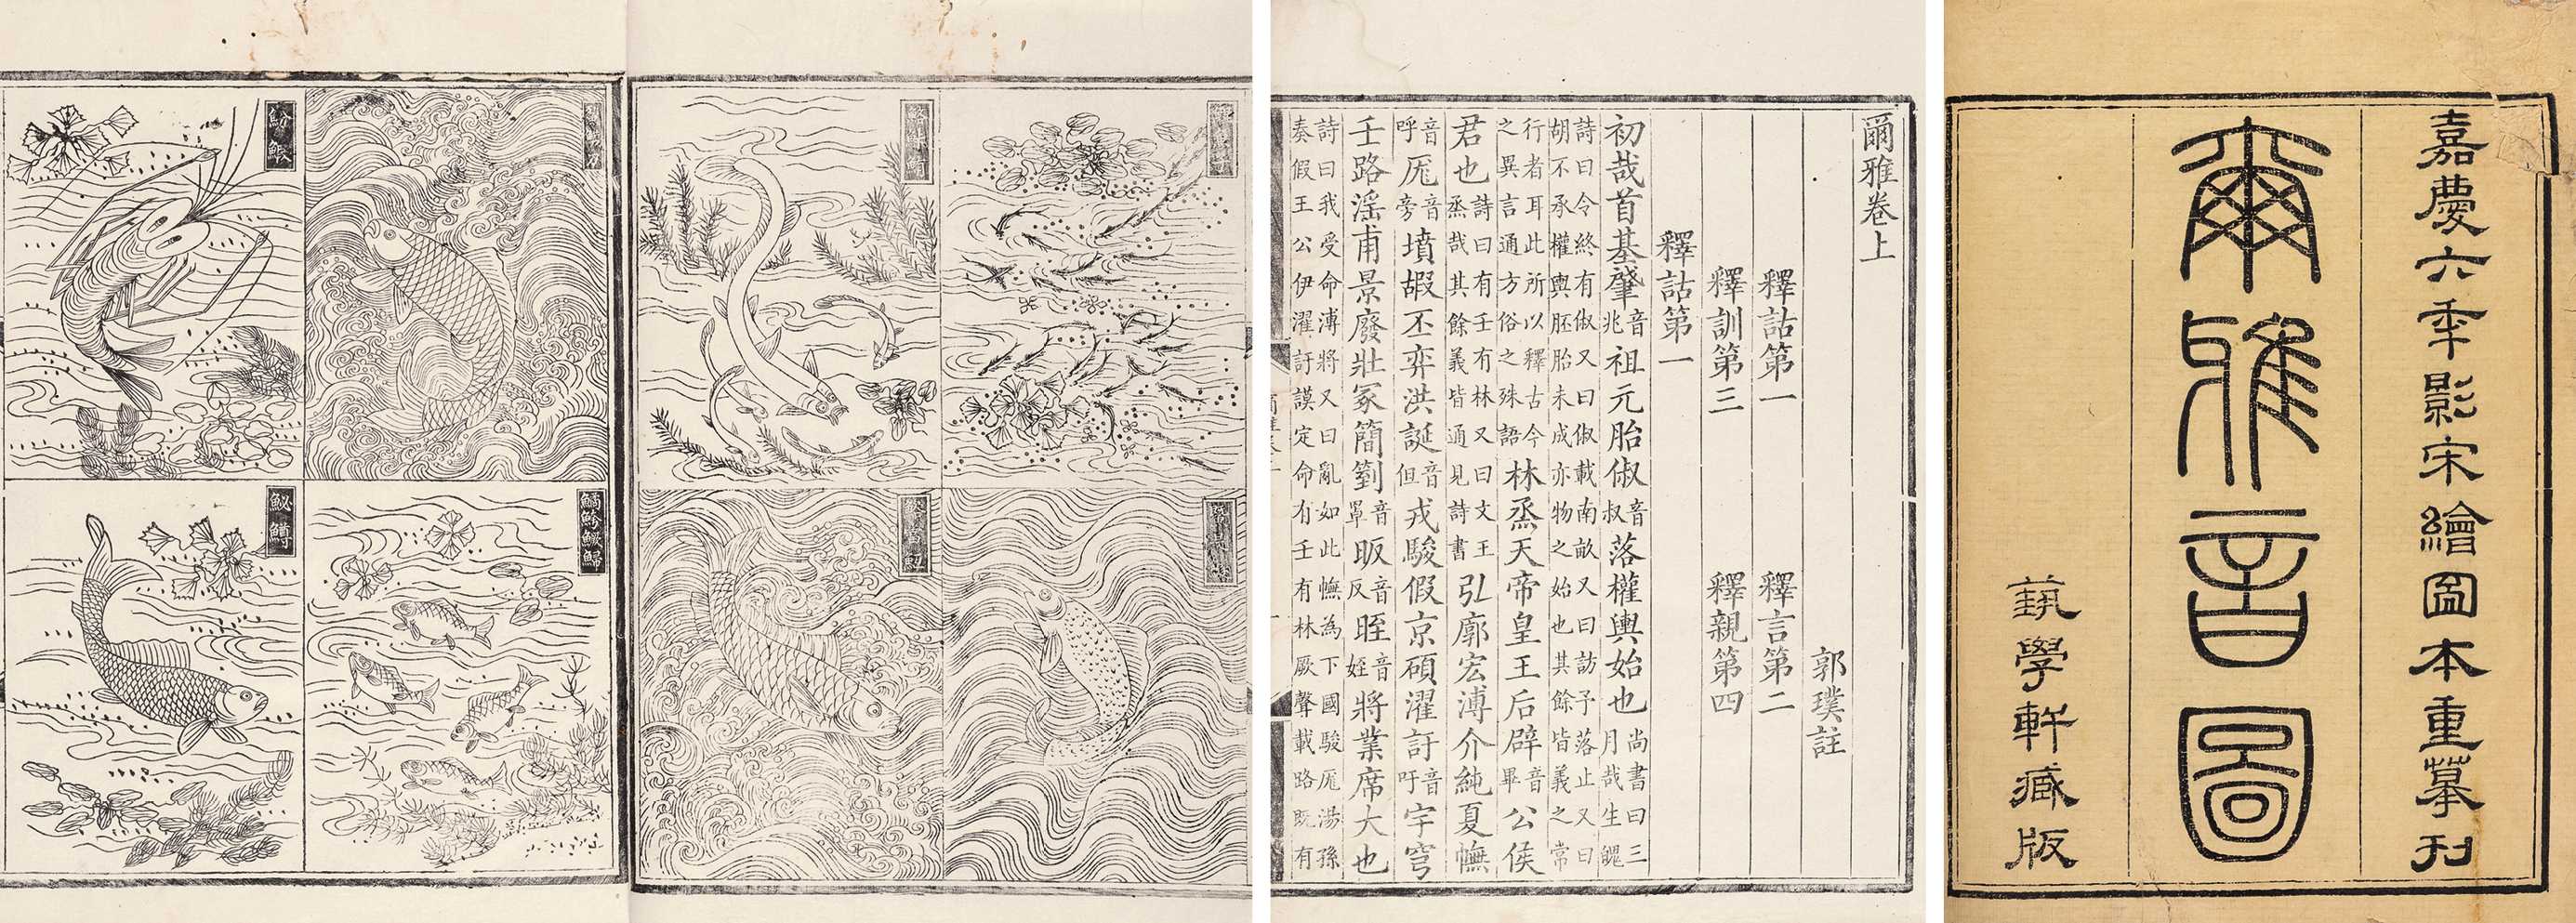 嘉慶六秊影宋繪圖本重摹刊
爾雅音圖
藝學軒藏版
爾雅卷上
郭璞註
釋詁第一 釋言第二
釋訓第三 釋親第四
釋詁第一
初哉首基肇音兆祖元胎俶音叔落權輿始也尚書曰三月哉生魄
詩曰令終有俶又曰俶載南畝又曰訪予落止又曰
胡不承權輿胚胎未成亦物之始也其餘皆義之常
行者耳此所以釋古今之異言通方俗之殊語林烝天帝皇王后辟音畢公侯
君也詩曰有壬有林又曰文王烝哉其餘義皆通見詩書弘廓宏溥介純夏幠
音呼厖音旁墳嘏丕弈洪誕音但戎駿假京碩濯訏音吁宇穹
壬路淫甫景廢壯冢簡箌音罩昄音反晊音姪將業席大也
詩曰我受命溥將又曰亂如此幠為下國駿厖湯孫
奏假王公伊濯訏謨定命有壬有林厥聲載路既有
魵鰕
鱊鮬鱖鯞
鮅鱒